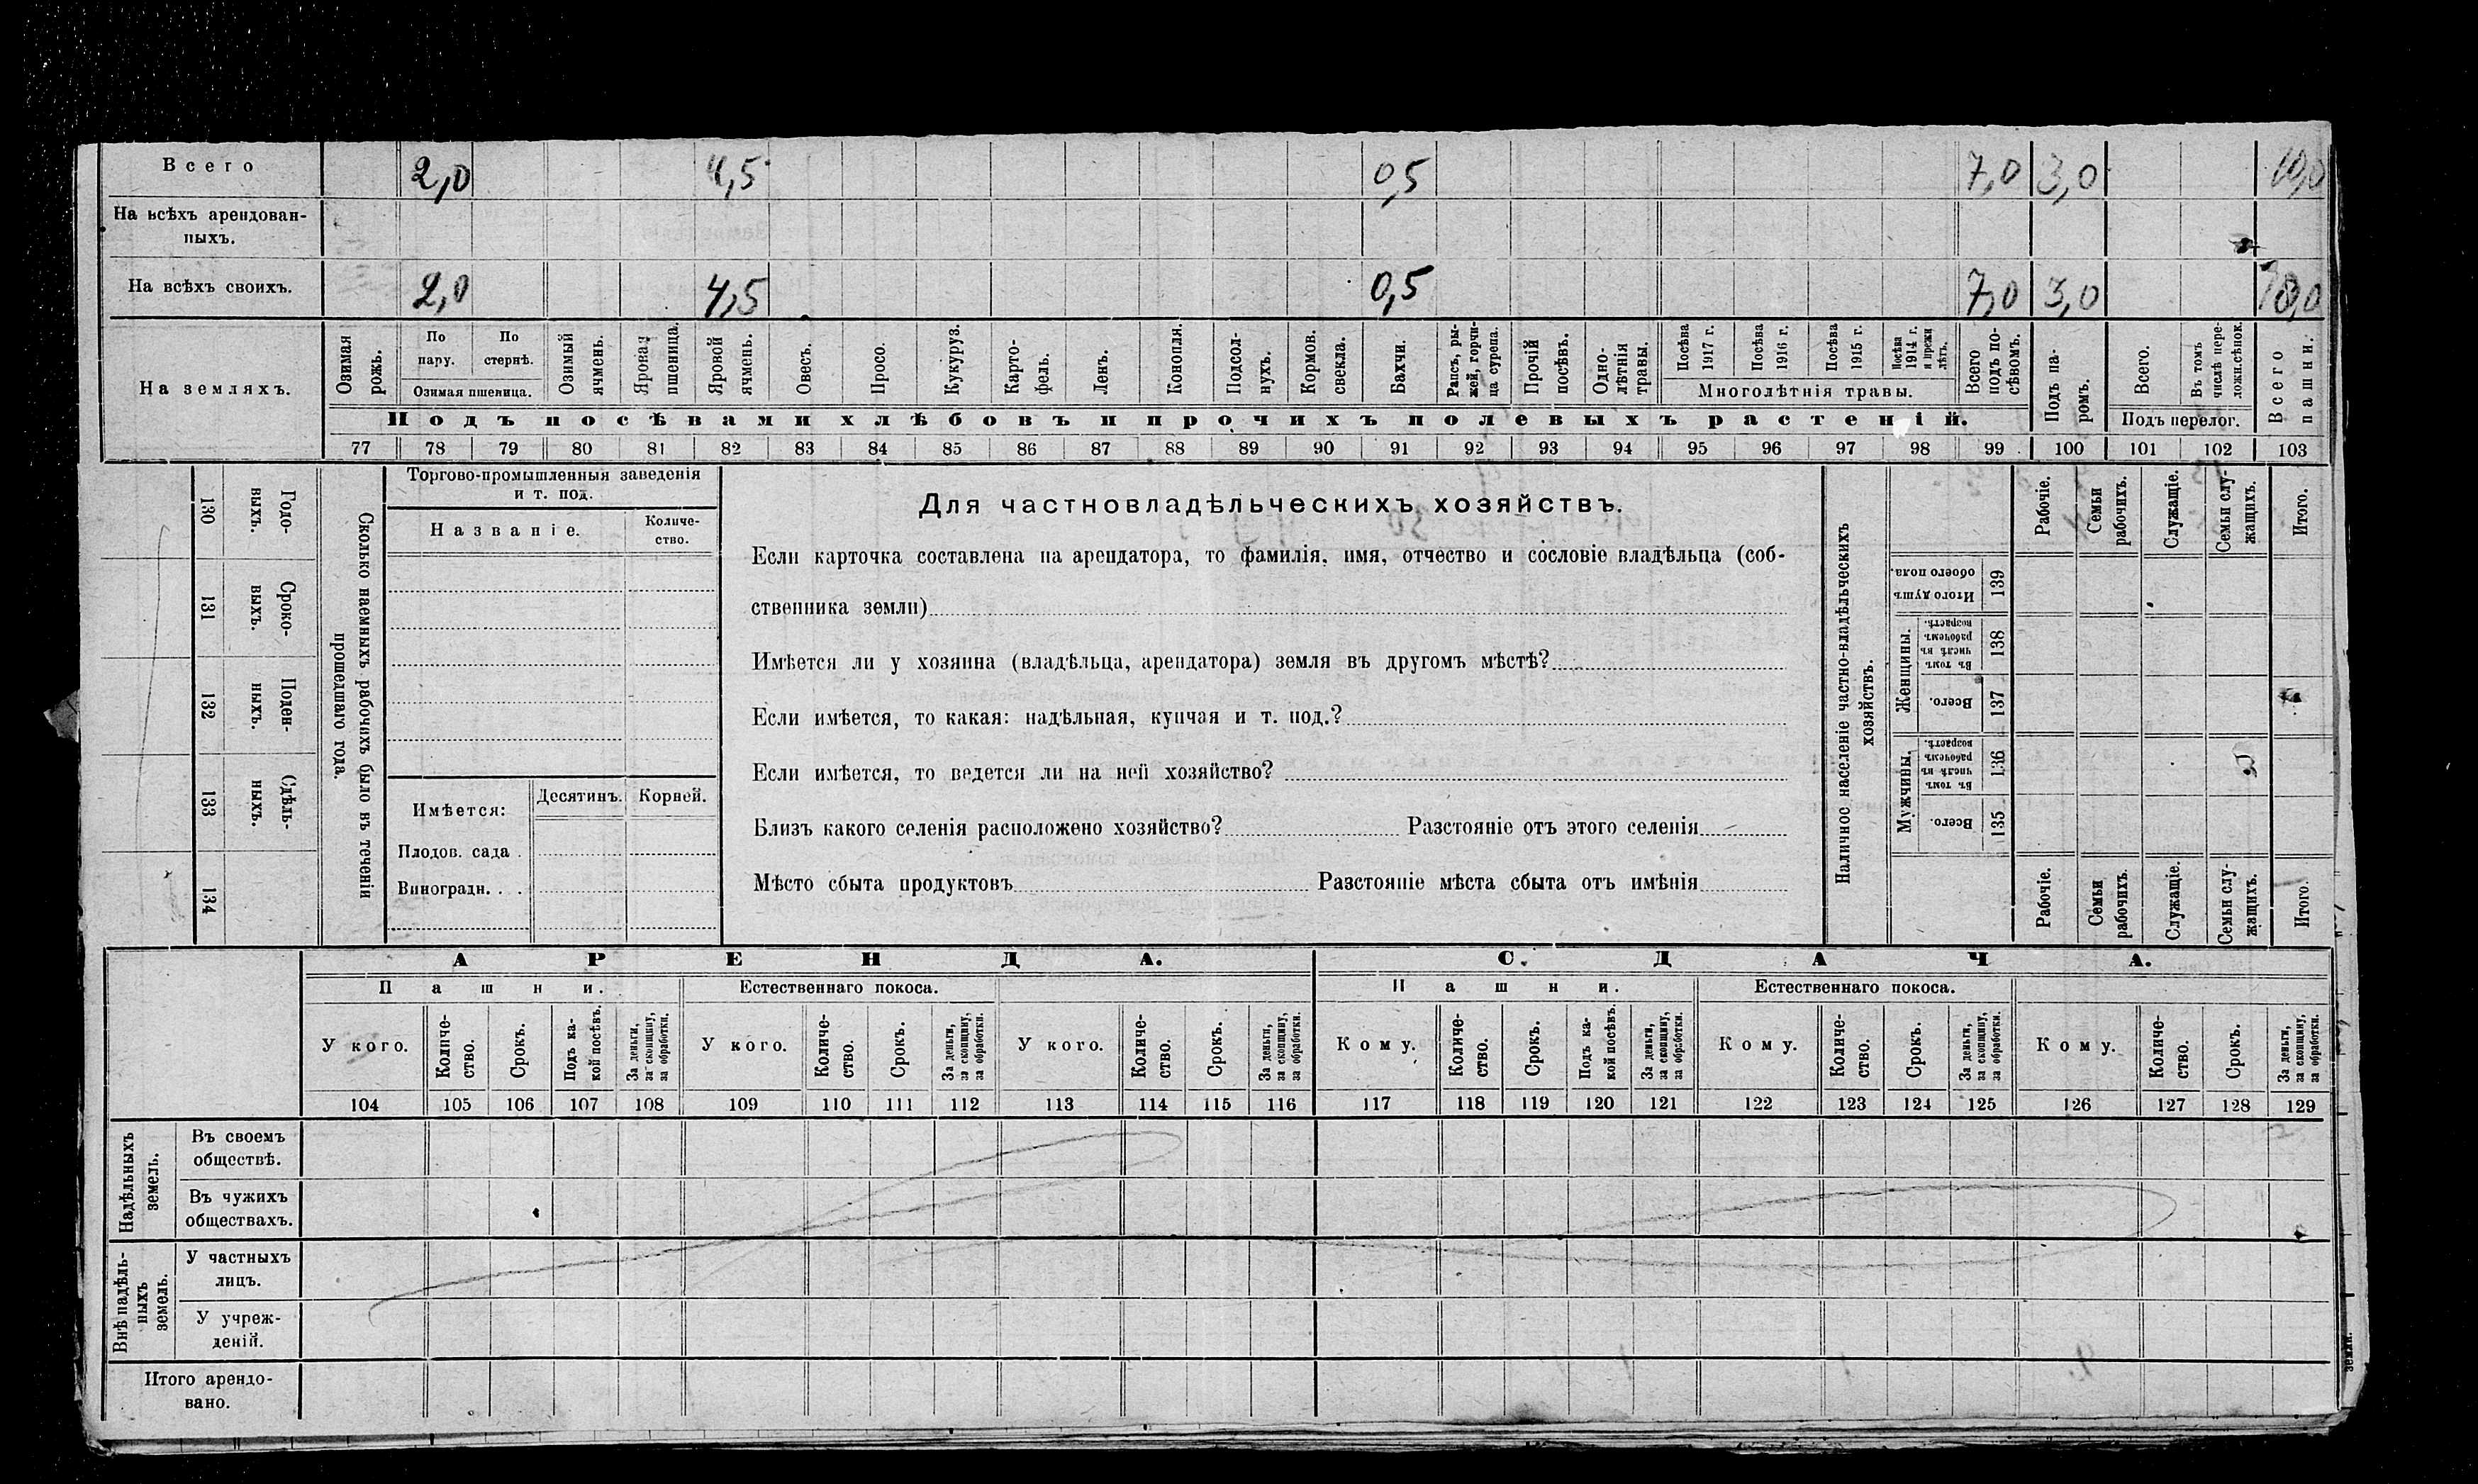 Всего 2,0 4,5 0,5 7,0 3,0 10,0
На всѣхъ арендован-
ныхъ.
На всѣхъ своихъ. 2,0 4,5 0,5 7,0 3,0 10,0
На земляхъ.
Озимая рожь.
По пару.
По стернѣ.
Озимая пшеница.
Озимый ячмень.
Яровая пшеница.
Яровой ячмень.
Овесъ.
Просо.
Кукуруз.
Карто-
фель.
Ленъ.
Конопля.
Подсол-
нухъ.
Кормов.
свекла.
Бахчи.
Рапсъ, ры-
жей, горчи-
ца сурепа.
Прочій
посѣвъ.
Одно-
лѣтнія
травы.
Посѣва
1917 г.
Посѣва
1916 г.
Посѣва
1915 г.
Посѣва
1914 г.
и прежн
лѣтъ.
Многолѣтнія травы.
Всего
подъ по-
сѣвомъ.
Подъ па-
ромъ.
Всего.
Въ томъ
числѣ пере-
ложн.сѣнок.
Подъ перелог.
Всего
пашни.
Подъ посѣвами хлѣбовъ и прочихъ полевыхъ растеній.
77 78 79 80 81 82 83 84 85 86 87 88 89 90 91 92 93 94 95 96 97 98 99 100 101 102 103
130 Годо-
выхъ.
131 Сроко-
выхъ.
132 Поден-
ныхъ.
133 Сдѣль-
ныхъ.
134
Сколько наемныхъ рабочихъ было въ теченіи
прошедшаго года.
Торгово-промышленныя заведенія
и т. под.
Названіе.
Количе-
ство.
Имѣется:
Десятинъ.
Корней.
Плодов. сада .
Виноградн. . .
Для частновладѣльческихъ хозяйствъ.
Если карточка составлена на арендатора, то фамилія, имя, отчество и сословіе владѣльца (соб-
ственника земли)
Имѣется ли у хозяина (владѣльца, арендатора) земля въ другомъ мѣстѣ?
Если имѣется, то какая: надѣльная, купчая и т. под.?
Если имѣется, то ведется ли на ней хозяйство?
Близъ какого селенія расположено хозяйство? Разстояніе отъ этого селенія
Мѣсто сбыта продуктовъ Разстояніе мѣста сбыта отъ имѣнія
Наличное населеніе частно-владѣльческихъ
хозяйствъ.
Рабочіе.
Семьи
рабочихъ.
Служащіе.
Семьи слу-
жащихъ.
Итого.
Итого душъ
обоего пола.
139
Женщины.
Въ томъ
числѣ въ
рабочемъ
возрастѣ.
138
Всего.
137
Мужчины.
Въ томъ
числѣ въ
рабочемъ
возрастѣ.
136
Всего.
135
Рабочіе.
Семьи
рабочихъ.
Служащіе.
Семьи слу-
жащихъ.
Итого.
АРЕНДА. СДАЧА.
Пашни. Естественнаго покоса. Пашни. Естественнаго покоса.
У кого.
Количе-
ство.
Срокъ.
Подъ ка-
кой посѣвъ.
За деньги,
за скопщину,
за обработки.
У кого.
Количе-
ство.
Срокъ.
За деньги,
за скопщину,
за обработки.
У кого.
Количе-
ство.
Срокъ.
За деньги,
за скопщину,
за обработки.
Кому.
Количе-
ство.
Срокъ.
Подъ ка-
кой посѣвъ.
За деньги,
за скопщину,
за обработки.
Кому.
Количе-
ство.
Срокъ.
За деньги,
за скопщину,
за обработки.
Кому.
Количе-
ство.
Срокъ.
За деньги,
за скопщину,
за обработки.
104 105 106 107 108 109 110 111 112 113 114 115 116 117 118 119 120 121 122 123 124 125 126 127 128 129
Надѣльныхъ
земель.
Въ своемъ
обществѣ.
Въ чужихъ
обществахъ.
Внѣ надѣль-
ныхъ
земель.
У частныхъ
лицъ.
У учреж-
деній.
Итого арендо-
вано.
земли.